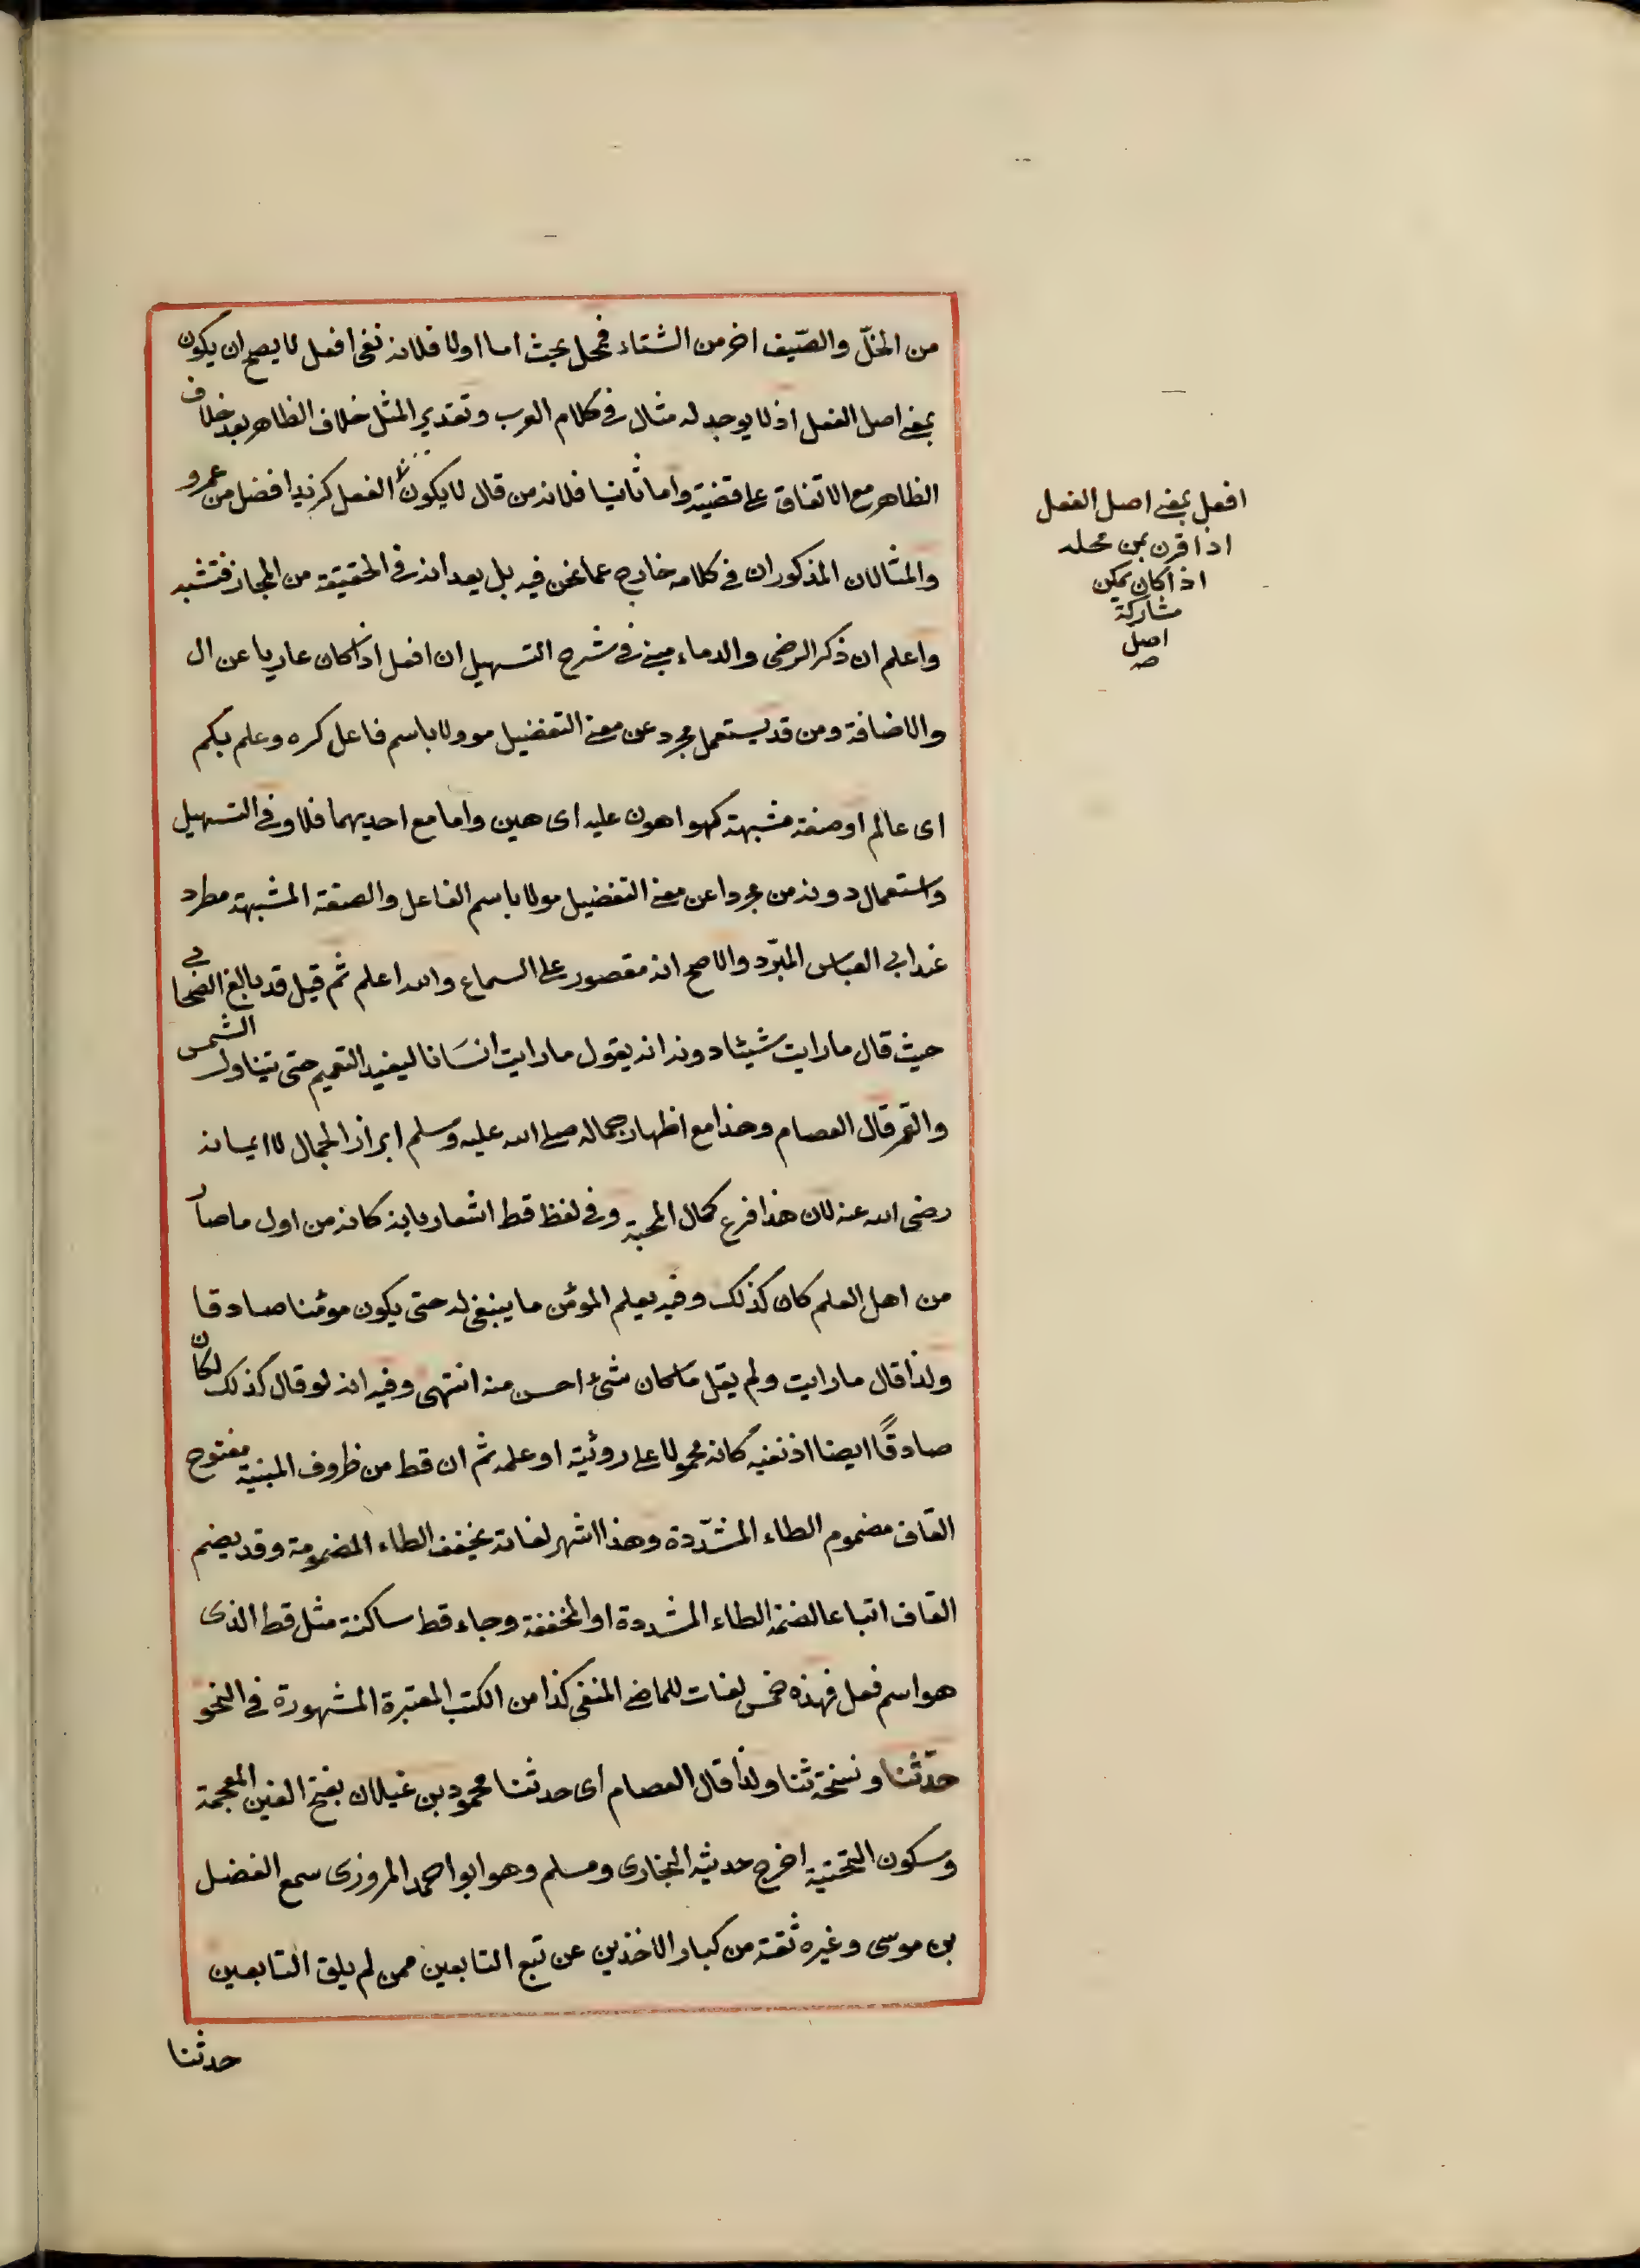 من الخلّ والصّيف احر من الشتاء فمحل بحث اما اولا فلانه نفى افعل لا يصح ان يكون
بمعنى اصل الفعل اذ لا يوجد له مثال فى كلام العرب وتقدير المثل خلاف الظاهر بعد خلاف
الظاهر مع الاتفاق على قضية واما ثانيا فلانه من قال لا يكون الفعل كزيد افضل من عمرو
والمثالان المذكوران فى كلامه خارج عما نحن فيه بل يعد انه فى الحقيقة من المجاز فتشبه
واعلم ان ذكر الرضى والدماميني فى شرح التسهيل ان افعل اذا كان عاريا عن ال
والاضافة ومن قد يستعمل مجرد عن معنى التفضيل موولا باسم فاعل كره وعلم بكم
اى عالم او صفة مشبهة كهو اهون عليه اى هين واما مع احديهما فلا وفى التسهيل
واستعمال دونه من مجردا عن معنى التفضيل مولا باسم الفاعل والصفة المشبهة مطرد
عند ابى العباس المبرّد والاصح انه مقصور على السماع والله اعلم ثم قيل قد بالغ الصحابى
حيث قال ما رايت شيئا دونه انه يقول ما رايت انسَانا ليفيد التعميم حتى يتناول الشمس
والقمر قال العصام وهذا مع اظهار جماله صلى الله عليه وسلم ابراز الجمال لا ايمانه
رضى الله عنه لان هذا فرع كمال المحبة وفى لفظ قط اشعار بانه كانه من اول ما صار
من اهل العلم كان كذلك وفيه يعلم المؤمن ما ينبغى له حتى يكون مؤمنا صادقا
ولذا قال ما رايت ولم يقل ما كان شئ احسن منه انتهى وفيه انه لو قال كذلك لكان
صادقًا ايضا اذ نفيه كانه محمولا على روئية او علمه ثم ان قط من ظروف المبنية مفتوح
القاف مضموم الطاء المشدّدة وهذا اشهر لغاته تخفف الطاء المضمومة وقد يضم
القاف اتباعا لضمة الطاء المشددة او المخففة وجاء قط ساكنة مثل قط الذى
هو اسم فعل فهذه خمس لغات للماضى المنفى كذا من الكتب المعتبرة المشهورة فى النحو
حدّثنا ونسخة ثنا ولذا قال العصام اى حدثنا محمود بن غيلان بفتح الغين المعجمة
وسكون التحتية اخرج حديثه البخارى ومسلم وهو ابو احمد المروزى سمع الفضل
بن موسى وغيره ثقة من كبار الاخذين عن تبع التابعين ممن لم يلق التابعين
حدثنا
افعل بمعنى اصل الفعل
اذا قرن بمن محله
اذا كان يمكن
مشاركة
اصل
صه